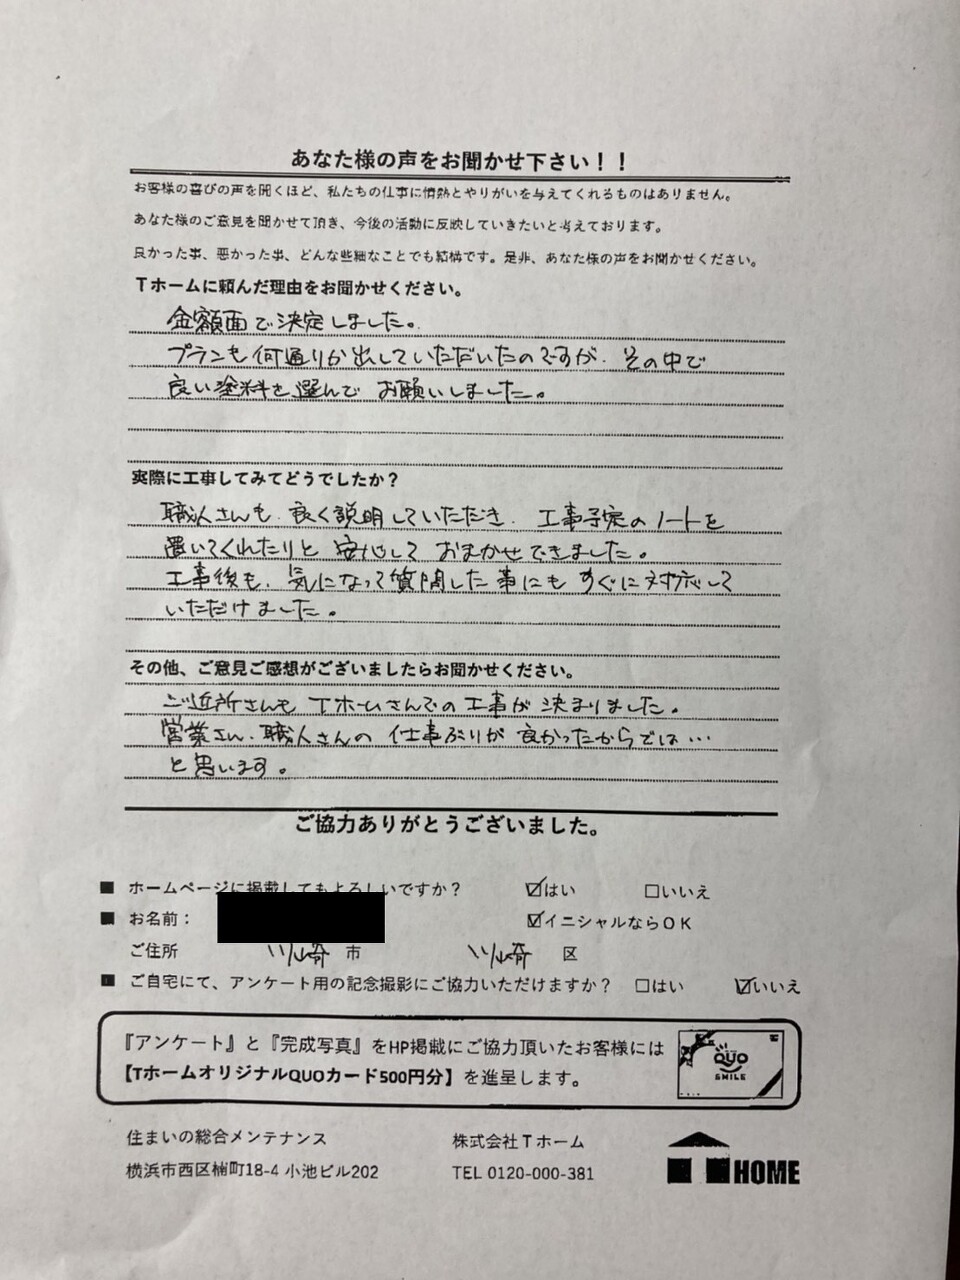 あなた様の声をお聞かせ下さい！！
お客様の喜びの声を聞くほど、私たちの仕事に情熱とやりがいを与えてくれるものはありません。
あなた様のご意見を聞かせて頂き、今後の活動に反映していきたいと考えております。
良かった事、悪かった事、どんな些細なことでも結構です。是非、あなた様の声をお聞かせください。
Tホームに頼んだ理由をお聞かせください。
金額面で決定しました。
プランも何通りか出していただいたのですが、その中で
良い塗料を選んで お願いしました。
実際に工事してみてどうでしたか？
職人さんも、良く説明していただき、工事予定のノートを
置いてくれたりと 安心して おまかせできました。
工事後も、気になって質問した事にも すぐに対応して
いただけました。
その他、ご意見ご感想がございましたらお聞かせください。
ご近所さんも Tホームさんでの工事が 決まりました。
営業さん、職人さんの 仕事ぶりが 良かったからでは…
と思います。
ご協力ありがとうございました。
■ ホームページに掲載してもよろしいですか？ ☑はい □いいえ
■ お名前： ☑イニシャルならOK
ご住所 川崎 市 川崎 区
■ ご自宅にて、アンケート用の記念撮影にご協力いただけますか？ □はい ☑いいえ
『アンケート』と『完成写真』をHP掲載にご協力頂いたお客様には
【TホームオリジナルQUOカード500円分】を進呈します。
QUO
SMILE
住まいの総合メンテナンス 株式会社Tホーム
横浜市西区楠町18-4 小池ビル202 TEL 0120-000-381
T HOME